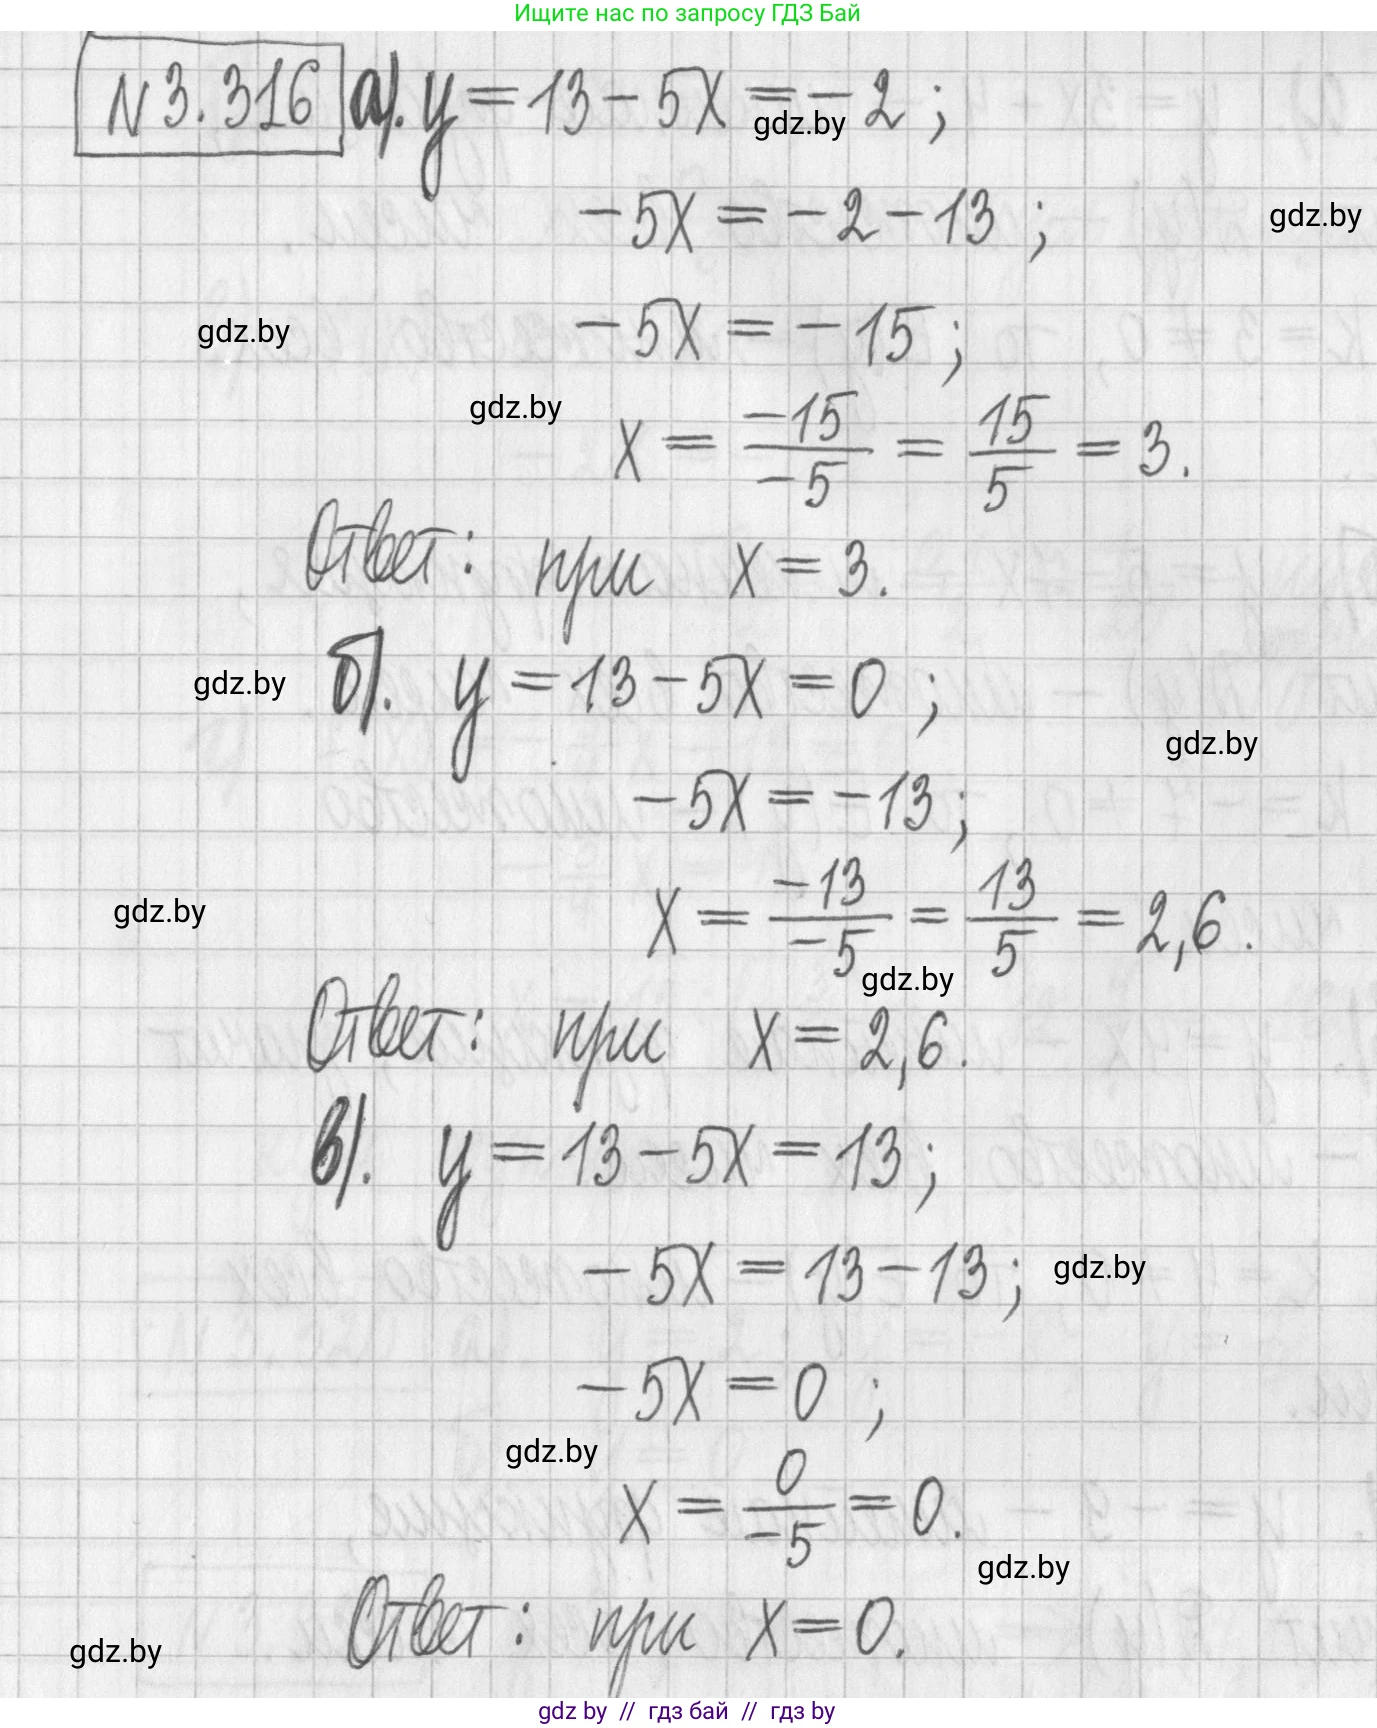 Ищите нас по запросу ГДЗ Бай
№3.316 а). y = 13 - 5x = -2 ;
gdz.by
-5x = -2 - 13 ;
gdz.by
-5x = -15 ;
gdz.by
gdz.by
x = -15/-5 = 15/5 = 3.
Ответ: при x = 3.
б). y = 13 - 5x = 0 ;
gdz.by
gdz.by
-5x = -13 ;
x = -13/-5 = 13/5 = 2,6.
gdz.by
gdz.by
Ответ: при x = 2,6.
в). y = 13 - 5x = 13 ;
-5x = 13 - 13 ;
gdz.by
-5x = 0 ;
gdz.by
x = 0/-5 = 0.
gdz.by
Ответ: при x = 0.
gdz.by
gdz by // гдз бай // gdz by